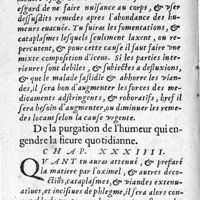 esgard de ne faire nuisance au corps, & vser
dessusdits remedes apres l'abondance des hu-
meurs euacuée. Tu fuiras les fomentations, &
cataplasmes lesquels seulement laxent, ou re-
percutent, & pour cette cause il faut faire vne
mixte composition d'iceux. Si les parties inte-
rieures sont debiles, & subiectes a defluxions, &
que le malade fastidie & abhorre les vian-
des, il sera bon d'augmenter les forces des me-
dicaments adstringents, & roboratifs, bref il
sera besoin d'augmenter, ou diminuer les reme-
des locaux selon la cause vrgente.
De la purgation de l'humeur qui en-
gendre la fieure quotidianne.
CHAP. XXXIIII.
QVANT tu auras attenué, & preparé
la matiere par l'oximel, & autres deco-
ctiõs, cataplasmes, & viandes extenua-
tiues, et incisiues de phlegme, il sera alors con-